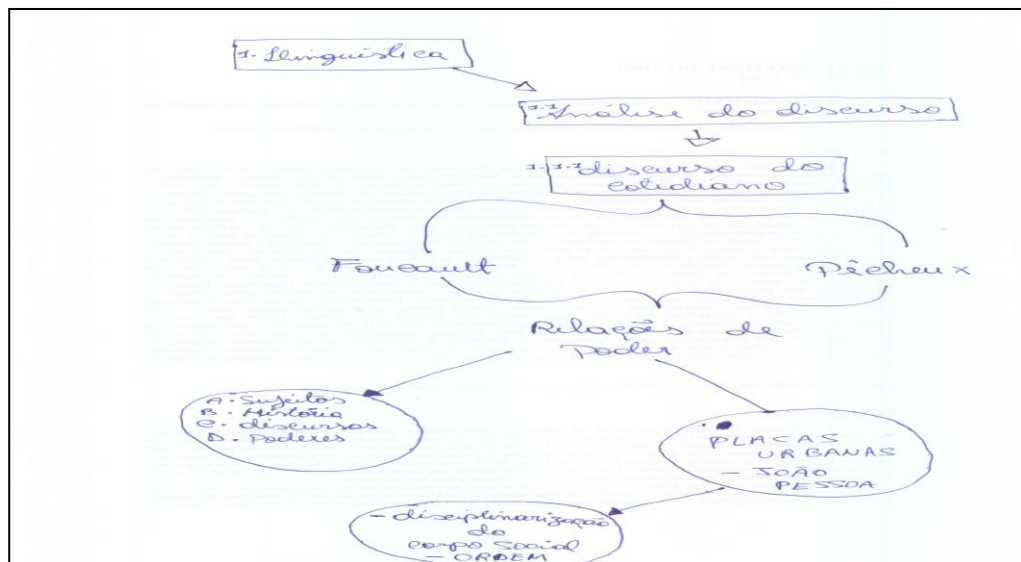 1. Linguística
1.1 Análise do discurso
1.1.1 discurso do
cotidiano
Foucault
Pêcheux
Relações de
Poder
A - Sujeitos
B - História
C - discursos
D - Poderes
PLACAS
URBANAS
- JOÃO
PESSOA
- disciplinarização
do
corpo social
- ORDEM